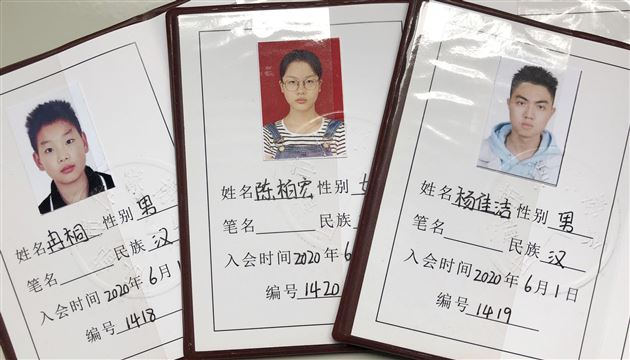 姓名冉桐性别男
笔名 民族汉
入会时间2020年6月1
编号1418
姓名陈柏宏性别女
笔名 民族
入会时间2020年6
编号1420
姓名杨佳洁性别男
笔名 民族汉
入会时间2020年6月1日
编号1419